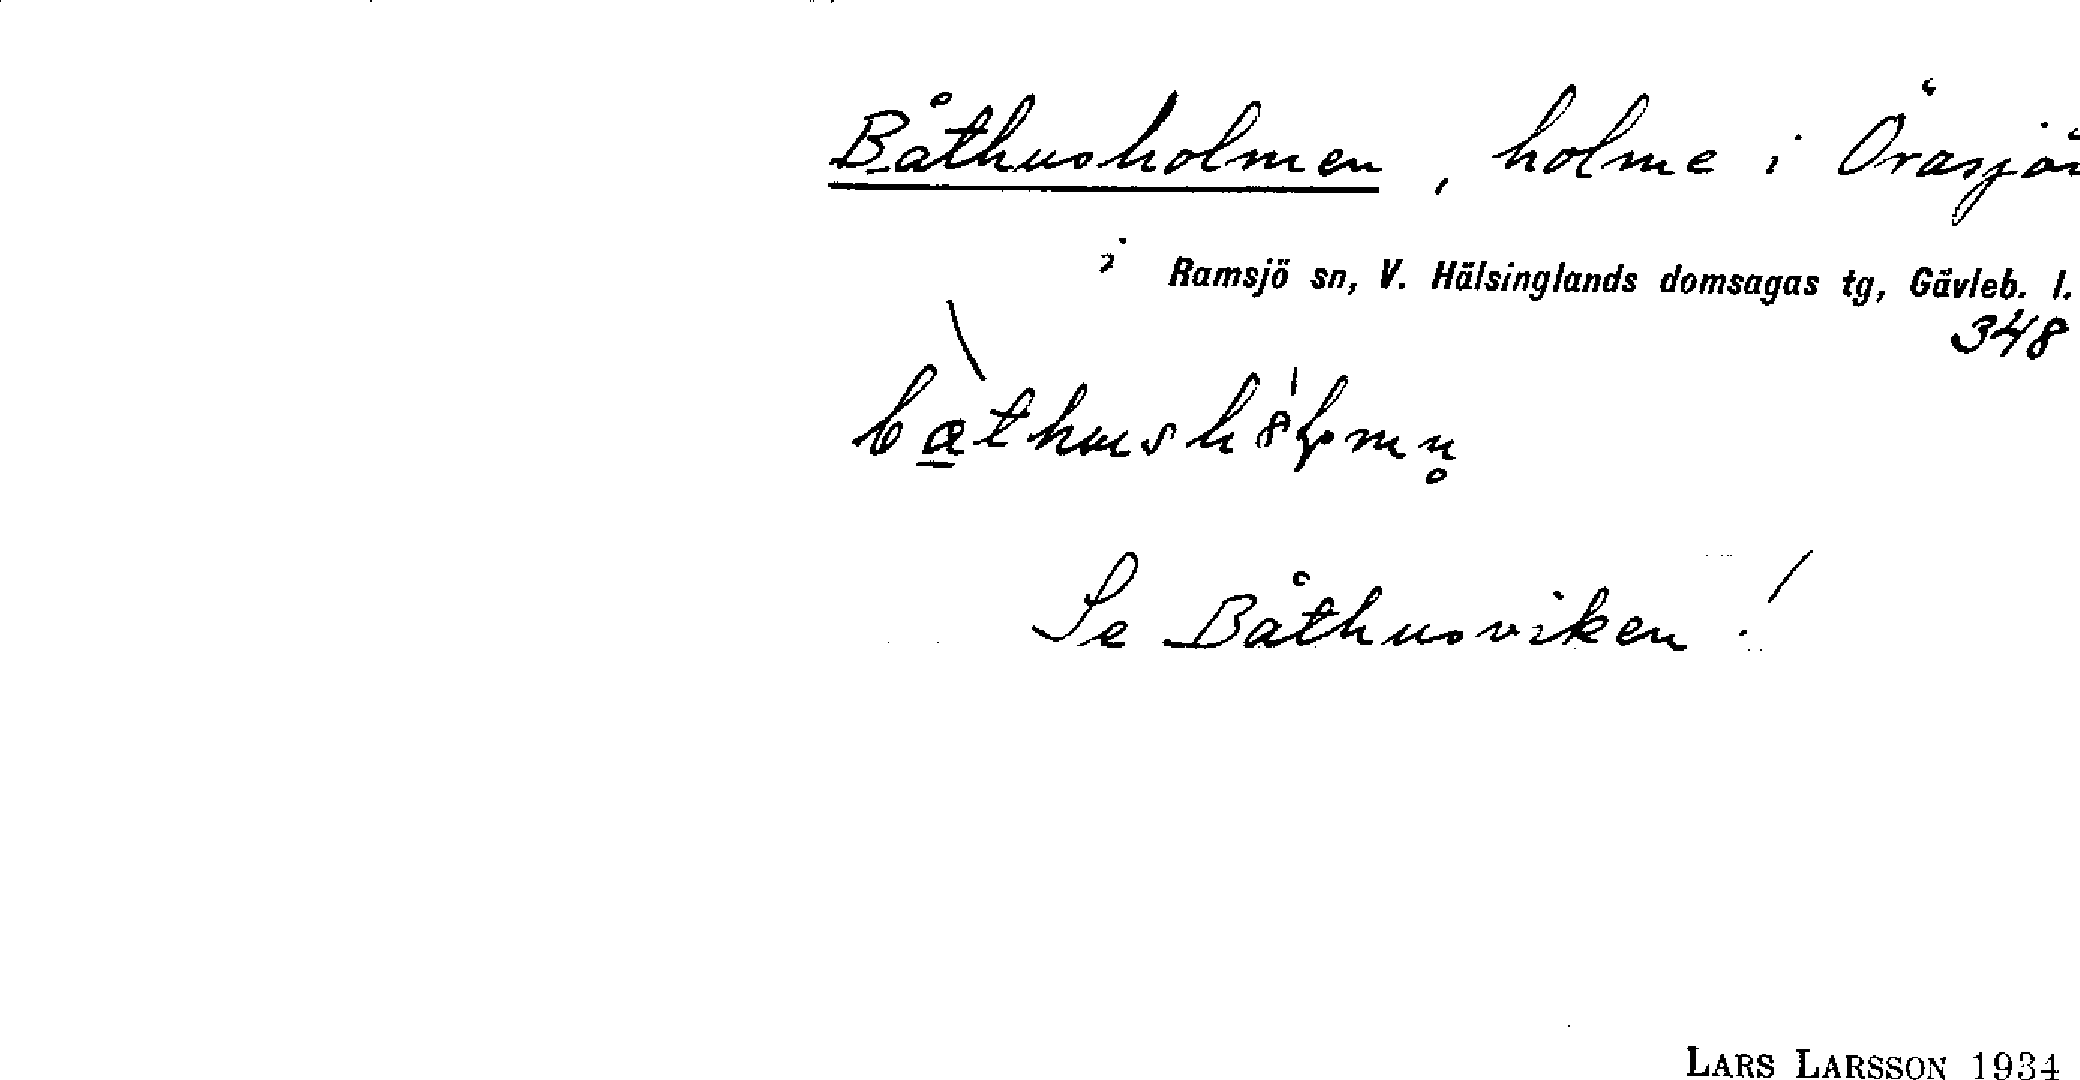 Båthusholmen, holme i Öråsjön
i Ramsjö sn, V. Hälsinglands domsagas tg, Gävleb. l.
348
Se Båthusviken!
LARS LARSSON 1934